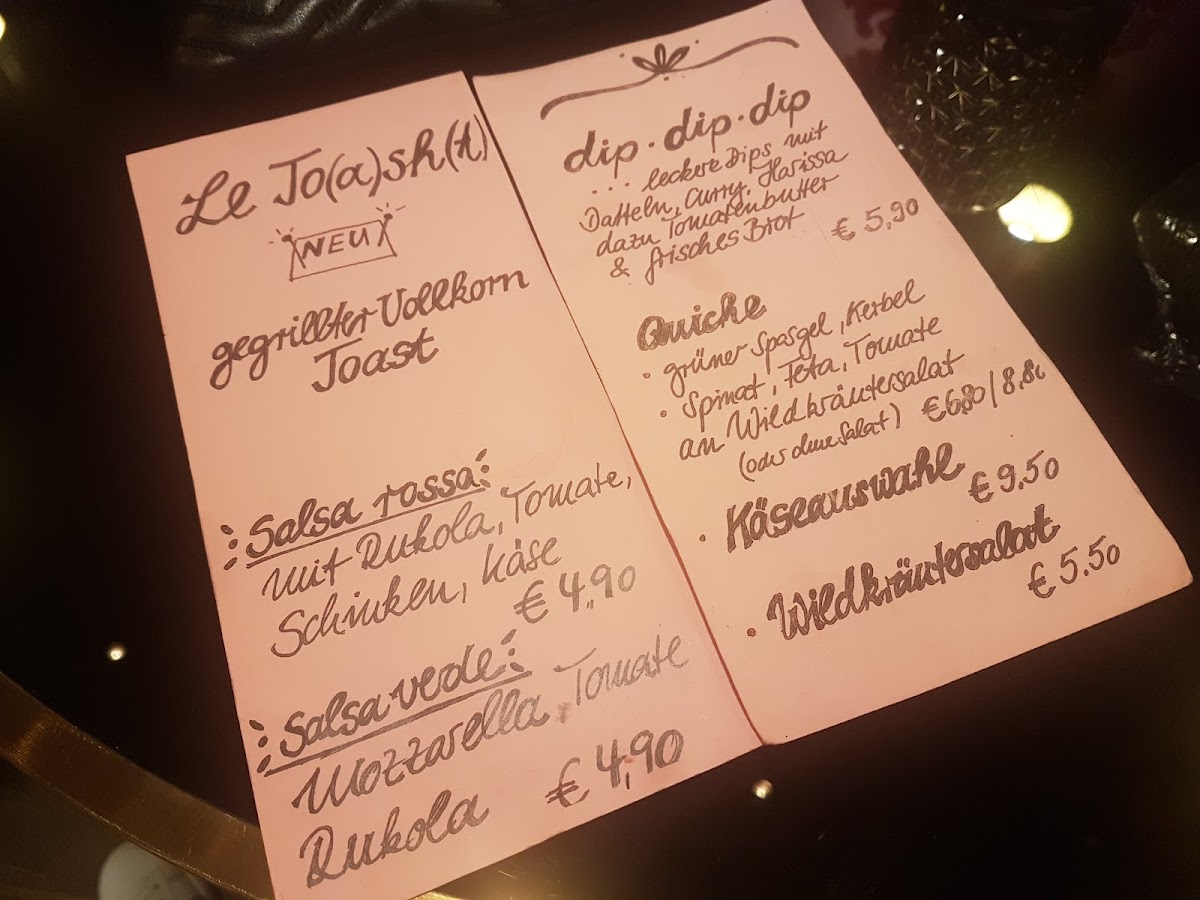 Le To(a)sh(t)
NEU
gegrillter Vollkorn
Toast
Salsa rossa:
mit Rukola, Tomate,
Schinken, Käse
€ 4,90
Salsa verde:
Mozzarella, Tomate
Rukola € 4,90
dip · dip · dip
... leckere Dips mit
Datteln, Curry, Harissa
dazu Tomatenbutter
& frisches Brot € 5,90
Quiche
· grüner Spargel, Kerbel
· Spinat, Feta, Tomate
an Wildkräutersalat
(oder ohne Salat) € 6,80 / 8,80
· Käseauswahl
€ 9,50
· Wildkräutersalat
€ 5,50